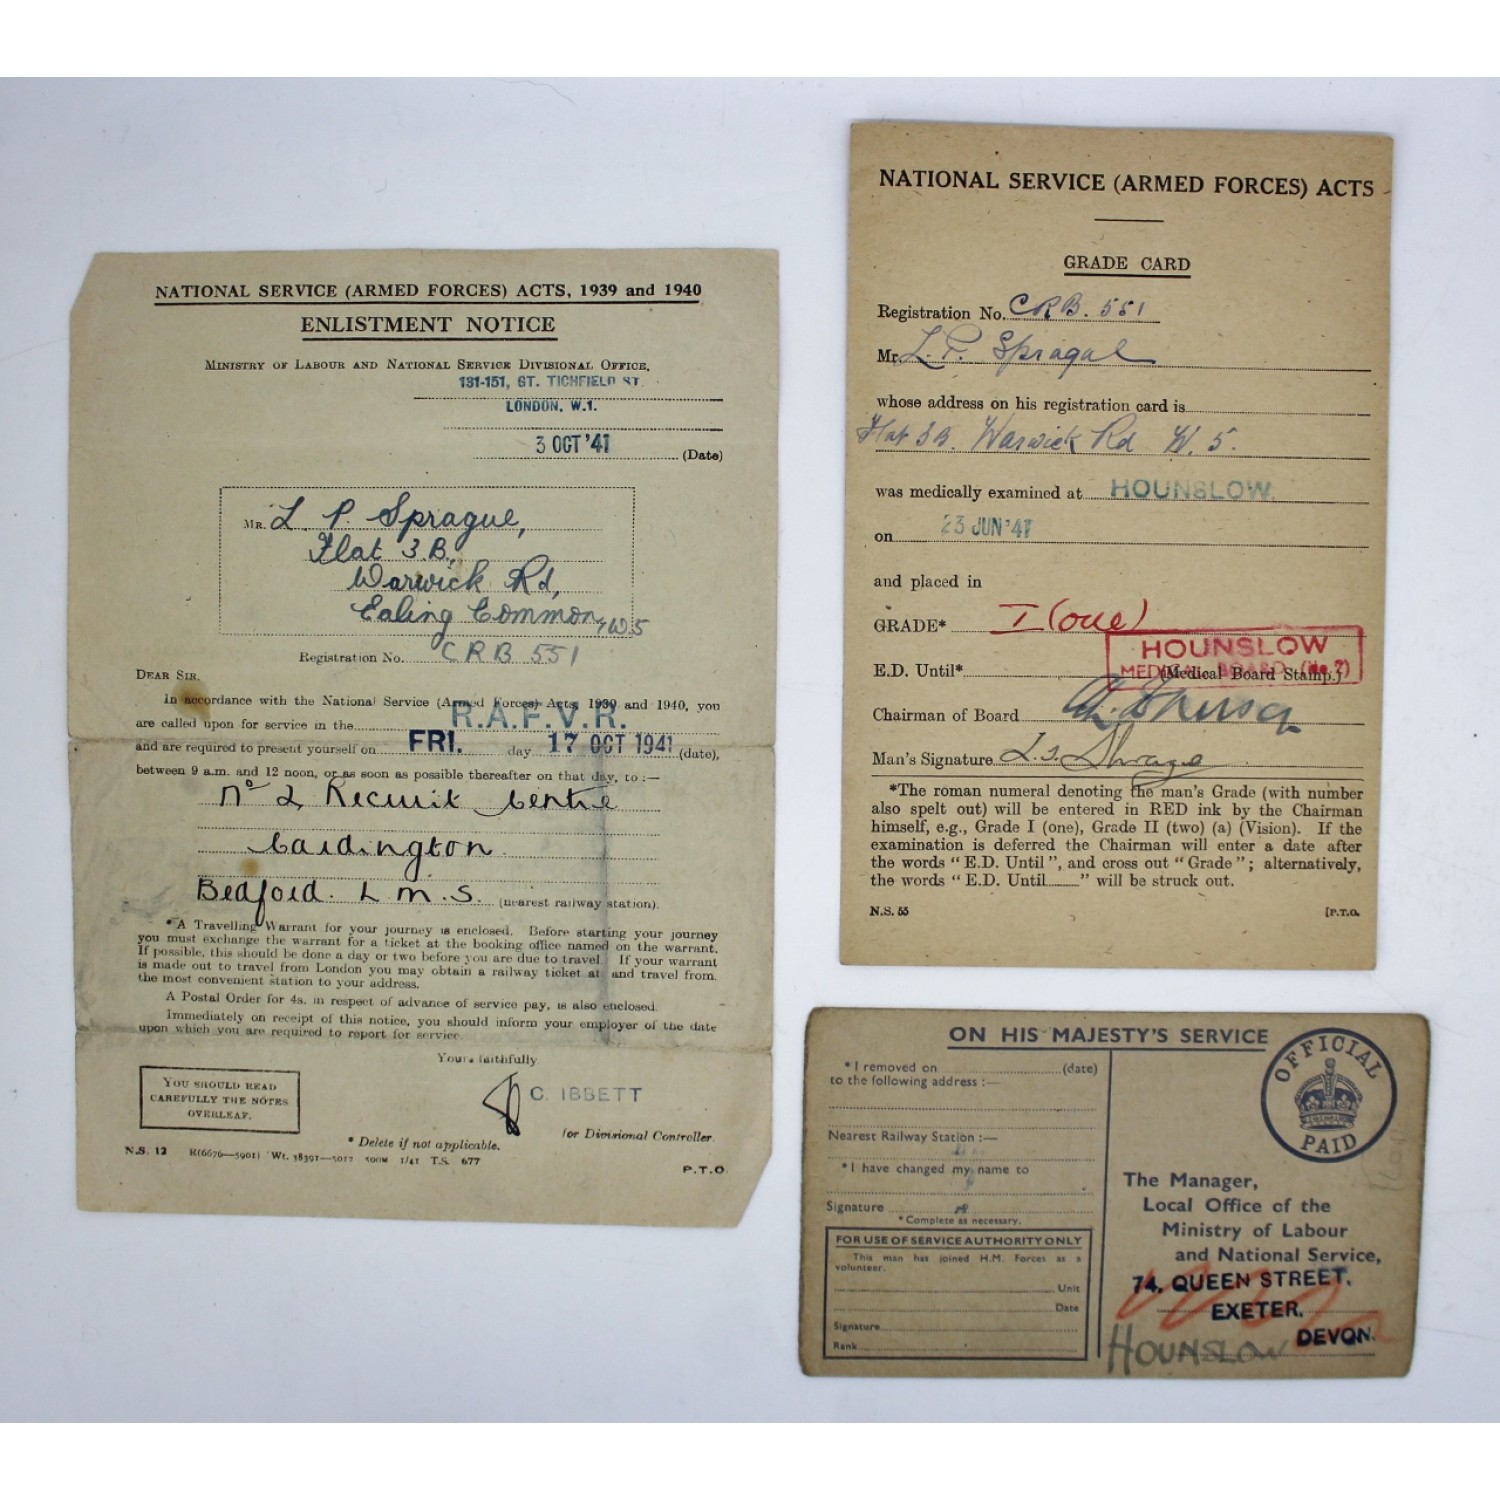 NATIONAL SERVICE (ARMED FORCES) ACTS, 1939 and 1940
ENLISTMENT NOTICE
MINISTRY OF LABOUR AND NATIONAL SERVICE DIVISIONAL OFFICE,
131-151, GT. TICHFIELD ST.
LONDON, W.1.
3 OCT '41 (Date)
MR. L. P. Sprague,
Flat 3.B.,
Warwick Rd,
Ealing Common, W5
Registration No. CRB 551
DEAR SIR,
In accordance with the National Service (Armed Forces) Acts, 1939 and 1940, you
are called upon for service in the R.A.F.V.R.
and are required to present yourself on FRI. day 17 OCT 1941 (date),
between 9 a.m. and 12 noon, or as soon as possible thereafter on that day, to :—
No 2 Recruit Centre
Cardington
Bedford. L.M.S. (nearest railway station).
*A Travelling Warrant for your journey is enclosed. Before starting your journey
you must exchange the warrant for a ticket at the booking office named on the warrant.
If possible, this should be done a day or two before you are due to travel. If your warrant
is made out to travel from London you may obtain a railway ticket at and travel from,
the most convenient station to your address.
A Postal Order for 4s. in respect of advance of service pay, is also enclosed.
Immediately on receipt of this notice, you should inform your employer of the date
upon which you are required to report for service.
Yours faithfully
C. IBBETT
for Divisional Controller.
YOU SHOULD READ
CAREFULLY THE NOTES
OVERLEAF.
* Delete if not applicable.
N.S. 12 R(6676—5901) Wt. 38391—5017 500M 1/41 T.S. 677
P.T.O.
NATIONAL SERVICE (ARMED FORCES) ACTS
GRADE CARD
Registration No. CRB. 551
Mr. L. P. Spragal
whose address on his registration card is
Flat 3B. Warwick Rd W. 5.
was medically examined at HOUNSLOW.
on 23 JUN '41
and placed in
GRADE* I (one)
HOUNSLOW
MEDICAL BOARD (No. 2)
E.D. Until* (Medical Board Stamp.)
Chairman of Board
Man's Signature
*The roman numeral denoting the man's Grade (with number
also spelt out) will be entered in RED ink by the Chairman
himself, e.g., Grade I (one), Grade II (two) (a) (Vision). If the
examination is deferred the Chairman will enter a date after
the words "E.D. Until", and cross out "Grade"; alternatively,
the words "E.D. Until......" will be struck out.
N.S. 55 [P.T.O.
ON HIS MAJESTY'S SERVICE
OFFICIAL
PAID
* I removed on (date)
to the following address :—
Nearest Railway Station :—
* I have changed my name to
Signature
* Complete as necessary.
FOR USE OF SERVICE AUTHORITY ONLY
This man has joined H.M. Forces as a
volunteer.
Unit
Date
Signature
Rank
The Manager,
Local Office of the
Ministry of Labour
and National Service,
74, QUEEN STREET.
EXETER.
DEVON.
HOUNSLOW